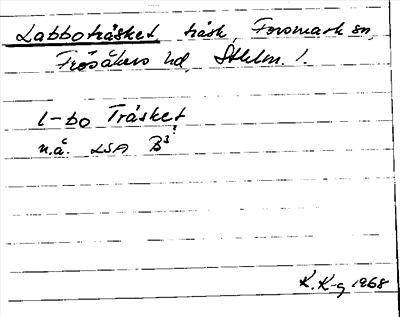 Labboträsket träsk, Forsmark sn,
Frösåkers hd, Sthlm. l.
l-bo Träsket
n.å. LSA B³
K. K-g 1968